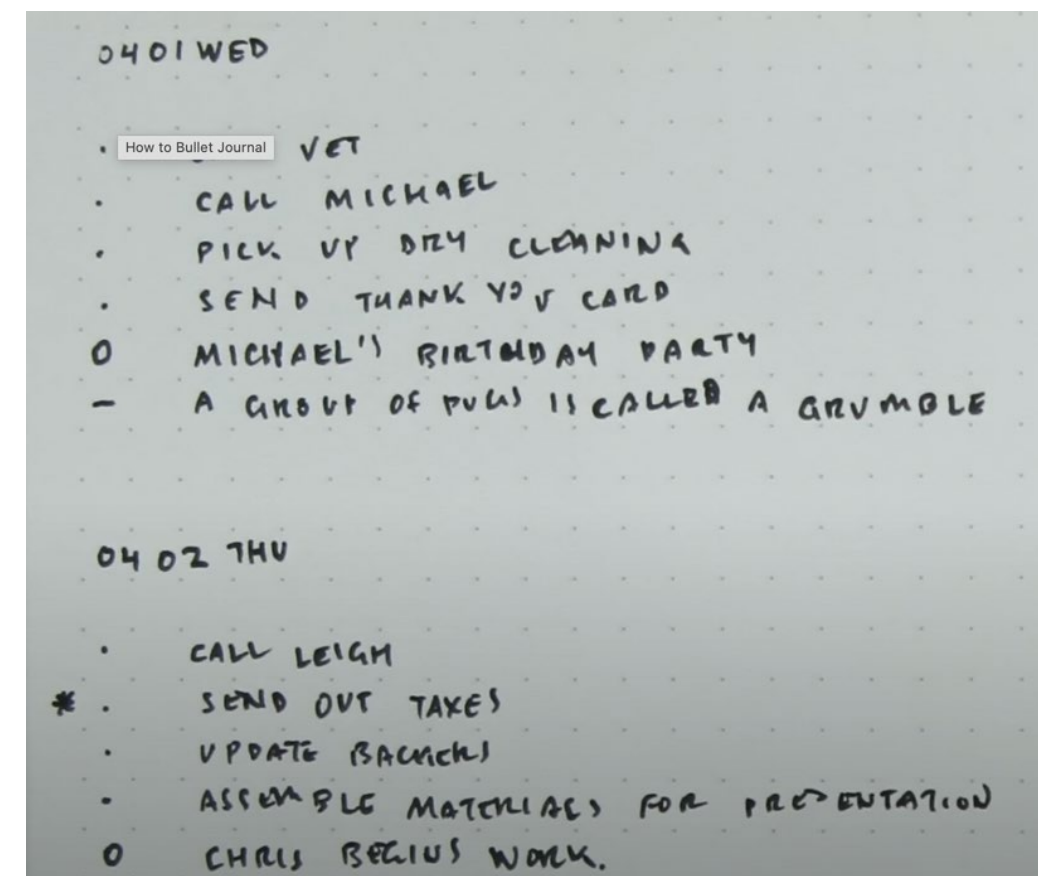 0401 WED
· How to Bullet Journal VET
· CALL MICHAEL
· PICK UP DRY CLEANING
· SEND THANK YOU CARD
O MICHAEL'S BIRTHDAY PARTY
– A GROUP OF PUGS IS CALLED A GRUMBLE
04 02 THU
· CALL LEIGH
* · SEND OUT TAXES
· UPDATE BACKERS
· ASSEMBLE MATERIALS FOR PRESENTATION
O CHRIS BEGINS WORK.